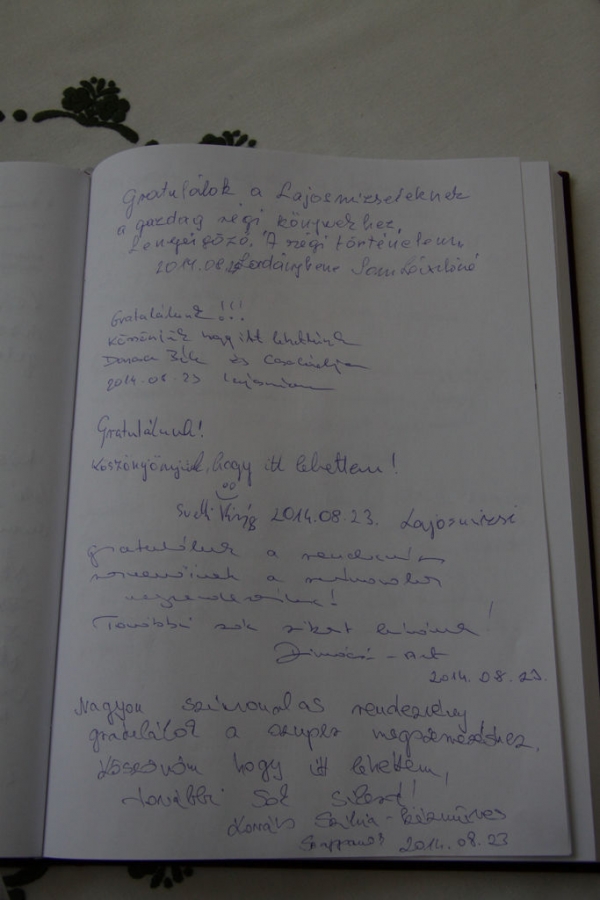 Gratulálok a Lajosmizseieknek
a gazdag régi könyvekhez.
Lenyűgöző. A régi történelem.
2014.08.23
Gratulálunk!!!
Köszönjük hogy itt lehettünk
Danara Béla és Családja
2014.08.23 Lajosmizse
Gratulálunk!
Köszöngyönyjük, hogy itt lehettem!
2014.08.23. Lajosmizsei
gratulálunk a rendezvény
szervezőinek a színvonalas
megrendezésért!
További sok sikert kívánunk!
2014.08.23.
Nagyon színvonalas rendezvény
gratulálok a szuper megszervezéshez.
Köszönöm hogy itt lehettem,
további sok sikert!
Kovács Szilvia - kézműves
2014.08.23